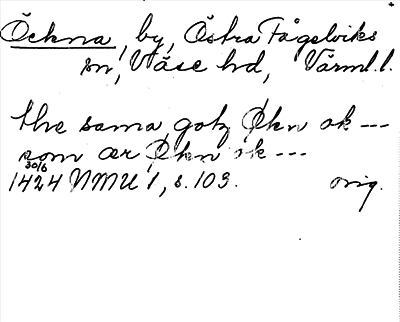 Öckna, by, Östra Fågelviks
sn, Väse hd, Värml. l.
the sama gotz Øken ok ---
som ær Øken ok ---
30/6
1424 NMU 1, s. 103. orig.